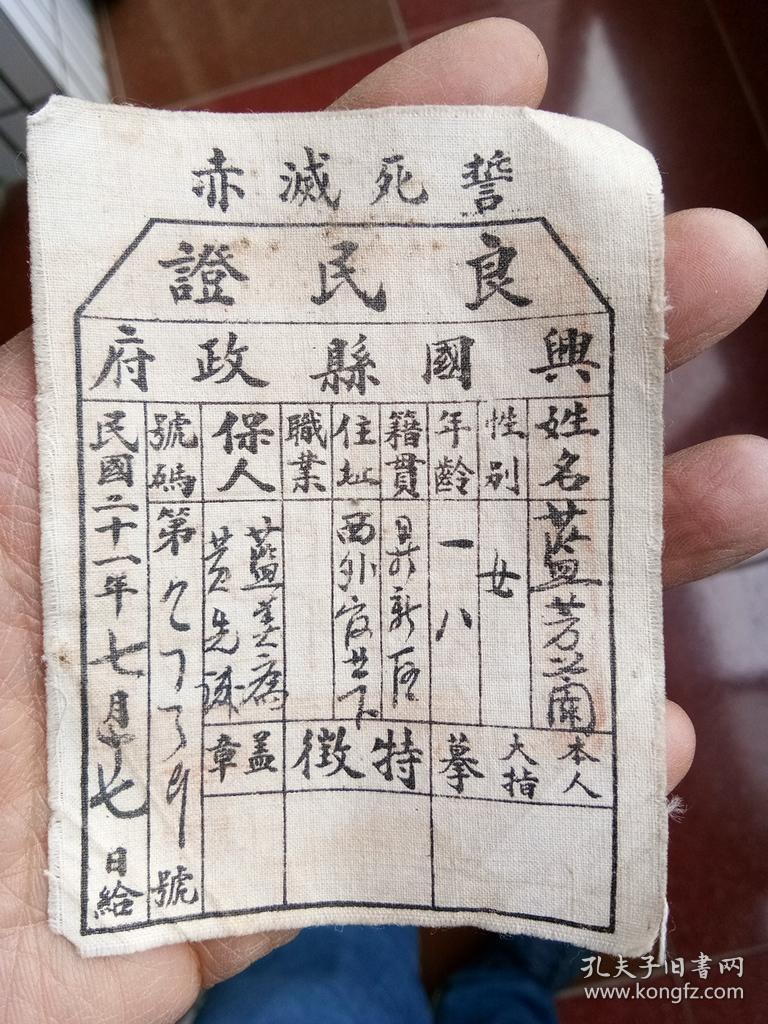 誓死滅赤
良民證
興國縣政府
姓名 藍芳蘭
性別 女
年齡 一八
籍貫
住址 西外
職業
保人 藍
黃先
號碼 第 號
民國二十一年七月十七日給
本人大指摹
特徵
盖章
孔夫子旧书网
www.kongfz.com